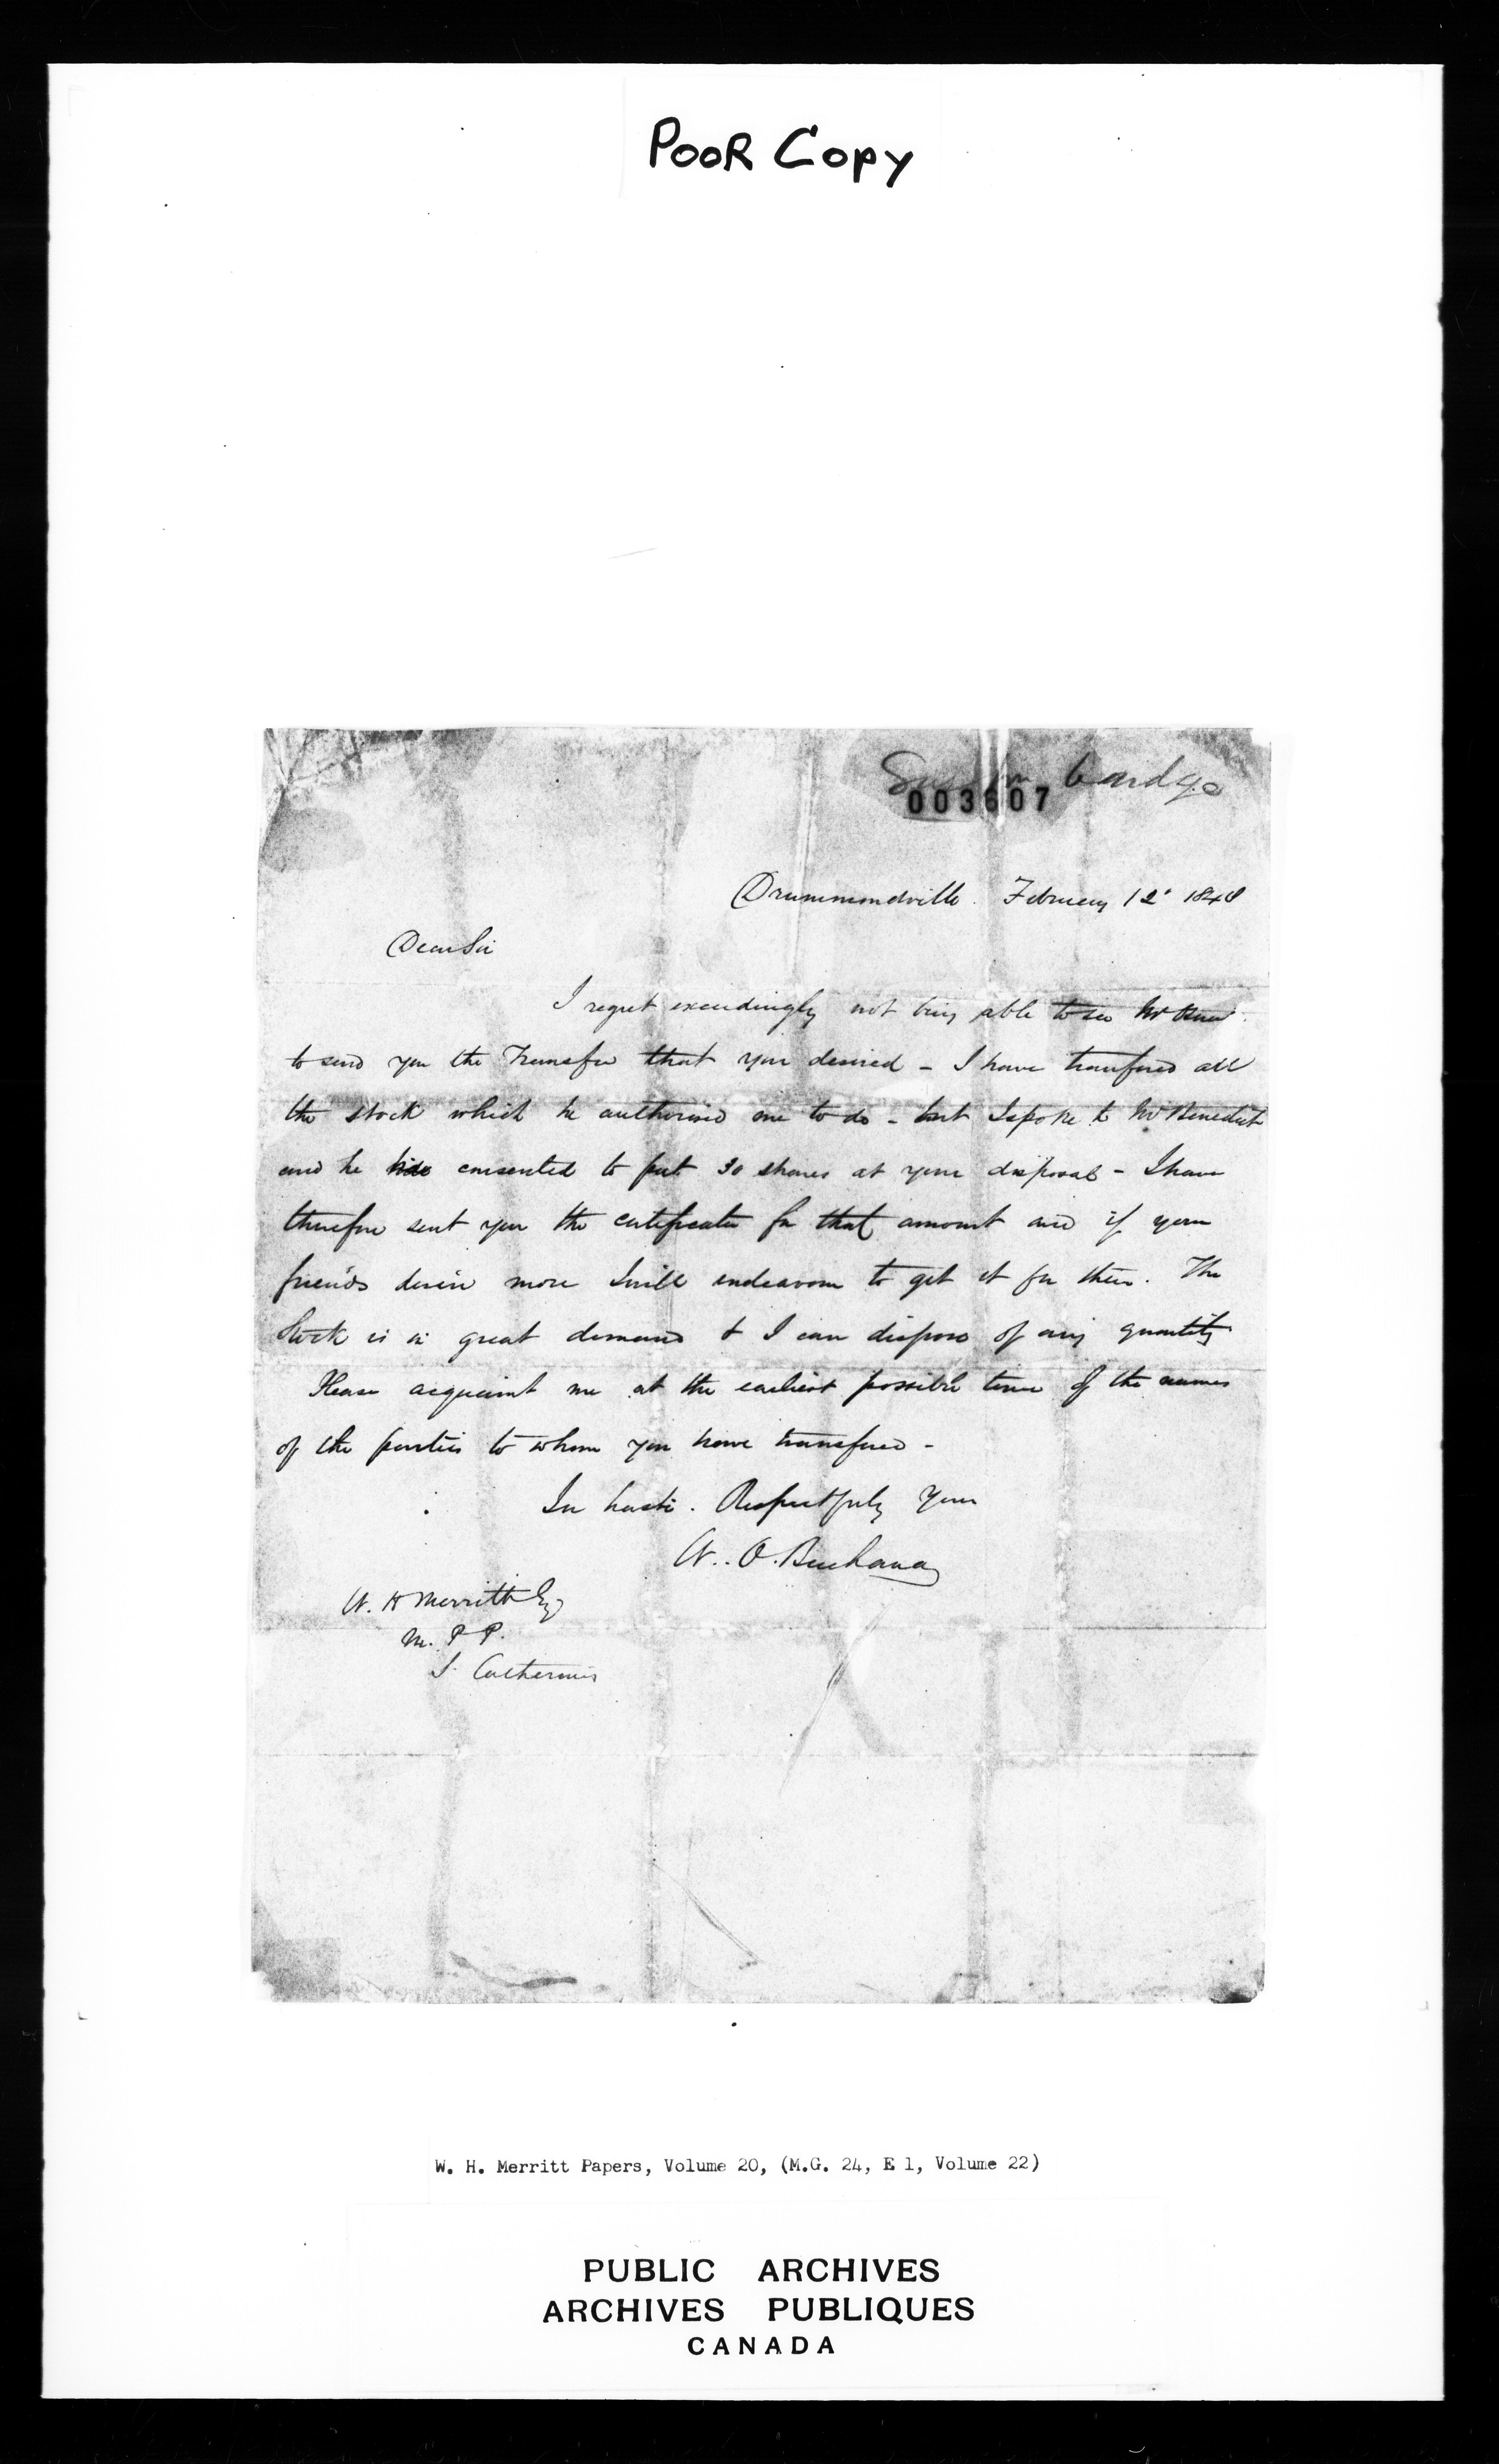 POOR COPY
003607
Drummondville. February 12' 1848
Dear Sir
I regret exceedingly not being able to see Mr
to send you the Transfer that you desired - I have transfered all
the stock which he authorised me to do - but I spoke to Mr Benedict
and he consented to put 30 shares at your disposal - I have
therefore sent you the certificate for that amount and if your
friends desire more I will endeavour to get it for them. The
Stock is in great demand & I can dispose of any quantity
Please acquaint me at the earliest possible time of the names
of the parties to whom you have transfered -
In haste. Respectfuly Your
W. O. Buchanan
W. H Merritt Esq
M. P P.
S. Catherines
W. H. Merritt Papers, Volume 20, (M.G. 24, E 1, Volume 22)
PUBLIC ARCHIVES
ARCHIVES PUBLIQUES
CANADA